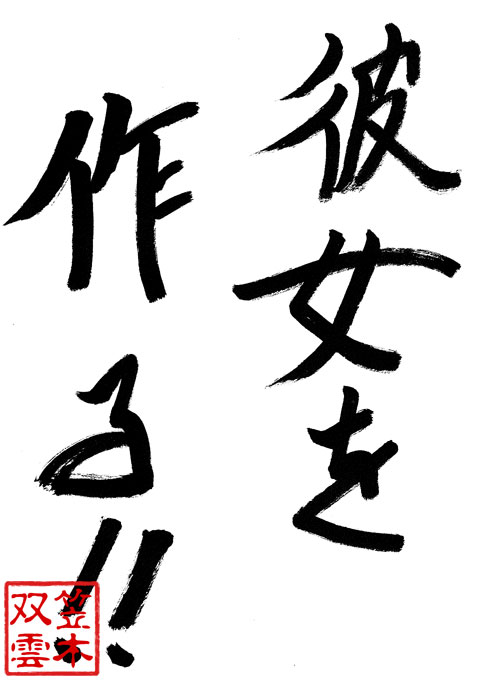 彼女を
作る!!
笠木
双雲